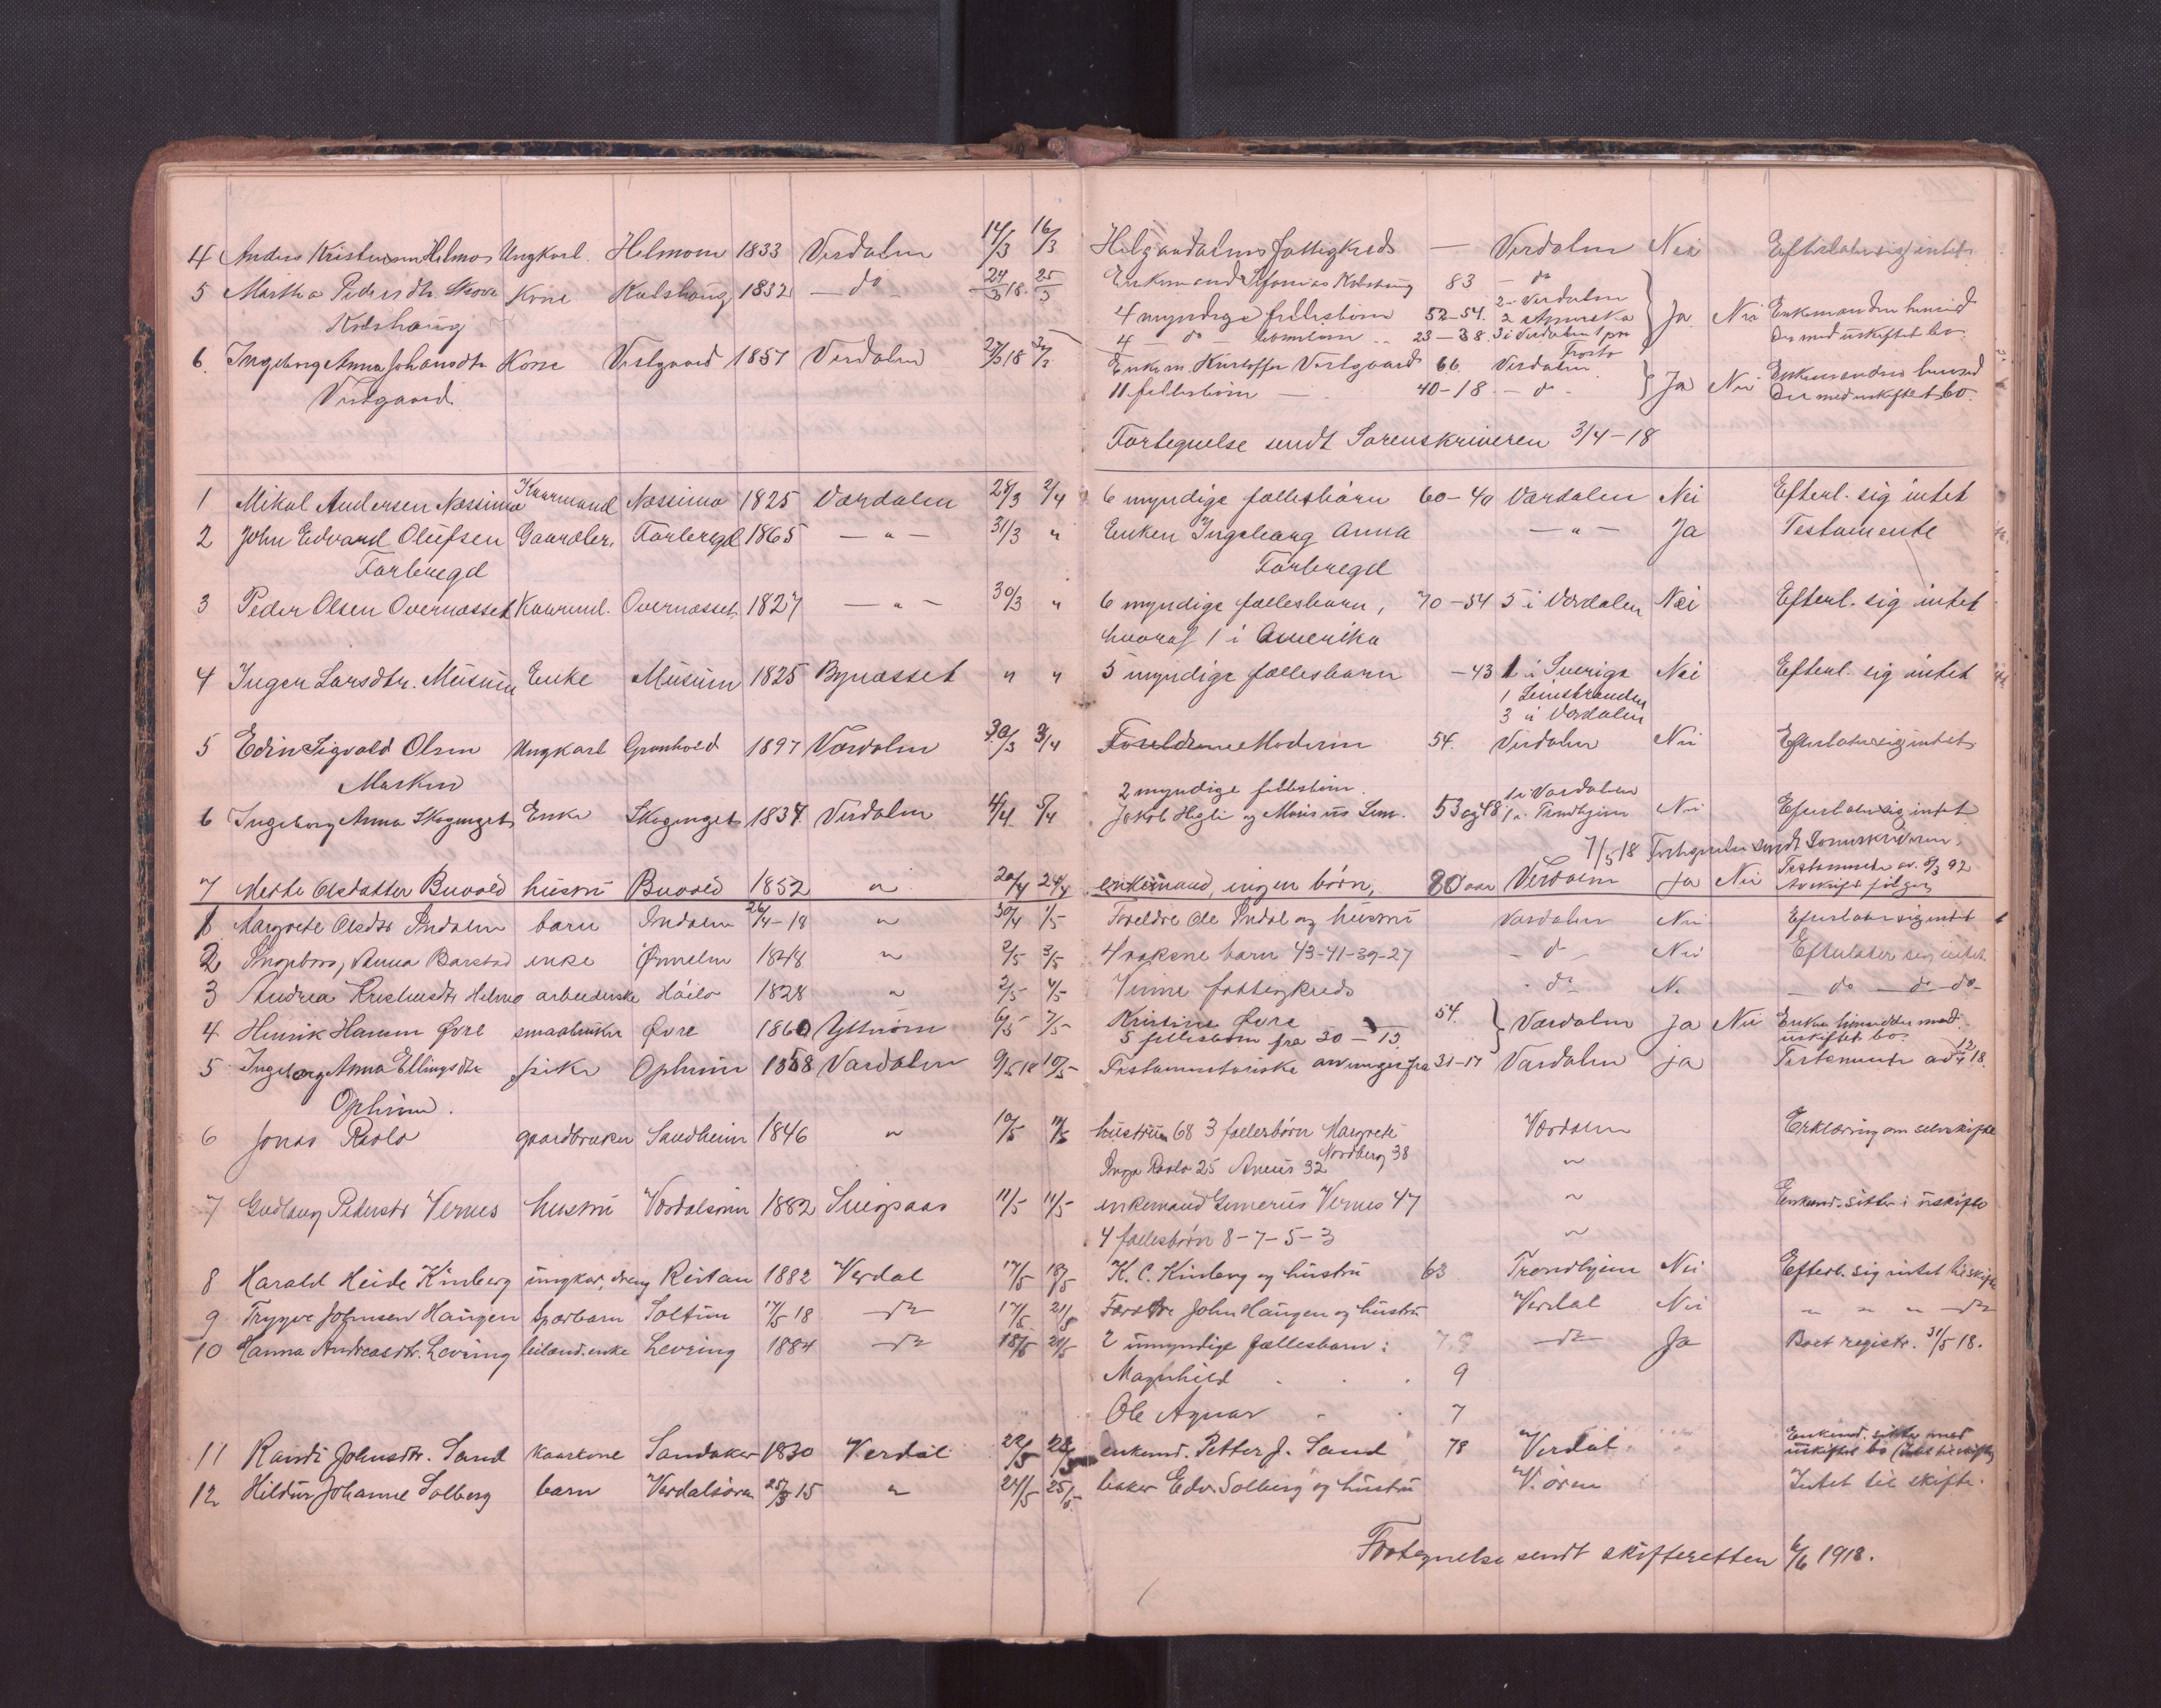 4 Anders Kristiansen Helmo Ungkarl. Helmoen 1833 Verdalen 14/3 16/3 Helgaadalens fattigkreds — Verdalen Nei Efterlater sig intet
5 Martha Pedersdtr. Skove Kone Kolshaug 1832 — do — 24/3 18. 25/3 Enkemand Kolshaug 83 — do
Kolshaug 4 myndige fellesbørn 52-54. 2 Verdalen 2 Amerika } Ja Nei Enkemanden hensid
4 — do — 23-38 3 i Verdalen 1 paa Frosta der med uskiftet bo.
6. Ingeborg Anna Johansdtr. Kone Vestgaard 1857 Verdalen 27/3 18 Enkem. Kristoffer Vestgaard 66. Verdalen } Ja Nei Enkemanden hensid
Vestgaard. 11 fellesbørn — 40-18 — do - der med uskiftet bo.
Fortegnelse sendt Sorenskriveren 3/4-18
1 Mikal Andersen Næssimo Kaarmand Næssimo 1825 Værdalen 28/3 2/4 6 myndige fællesbarn 60-40 Værdalen Nei Efterl. sig intet
2 John Edvard Olufsen Gaardbr. Forbregd 1865 — " — 31/3 " Enken Ingeborg Anna — " — Ja Testamente
Forbregd Forbregd
3 Peder Olsen Overnæsset Kaarmd. Overnæsset 1827 — " — 30/3 " 6 myndige fællesbarn, 70-54 5 i Værdalen Nei Efterl. sig intet
hvoraf 1 i Amerika
4 Inger Larsdtr. Musum Enke Musum 1825 Bynæsset " " 5 myndige fællesbarn -43 1 i Sverige Nei Efterl. sig intet
1 Leinstranden
3 i Værdalen
5 Edin Sigvald Olsen Ungkarl Grønhold 1897 Værdalen 30/3 3/4 Foreldrene Moderen 54. Verdalen Nei Efterlater sig intet
Marken
2 myndige fellesbørn. 1 i Værdalen
6 Ingeborg Anna Skogenget Enke Skogenget 1834. Verdalen 4/4 5/4 Jakob Hegli og Lem. 53 og 48 1 i Trondhjem Nei Efterlater sig intet
7/5 18 Fortegnelse sendt Sorenskriveren.
7 Mette Olsdatter Buvold hustru Buvold 1852 " 20/4 24/4 enkemand, ingen børn, 80 aar Verdalen Ja Nei Testamente av. 8/3 92 Avskrift følger
1 Margrete Olsdtr Indalen barn Indalen 26/4-18 " 30/4 1/5 Foreldre Ole Indal og hustru Værdalen Nei Efterlater sig intet
2 Ingeborg Anna Barstad enke Ørmelen 1848 " 2/5 3/5 4 voksne barn 43-41-39-27 — do — Nei Efterlater sig intet
3 Andrea Helmo arbeiderske 1828 " 2/5 4/5 Vinne fattigkreds - do - N. — do — do — do —
4 Henrik Hansen Øvre smaabruker Øvre 1860 Ytterøen 6/5 7/5 Kristine Øvre 54. } Værdalen Ja Nei Enken hensidder med
5 fellesbørn fra 30 — 15. uskiftet bo.
5 Ingeborg Anna Ellingsdtr. pike Opheim 1858 Værdalen 9/5 18 10/5 Testamentariske arvinger fra 31-17 Værdalen ja Testamente av 12/4 18.
Opheim.
6 Jonas Raolo gaardbruker Sandheim 1846 " 10/5 hustrun 68 3 fællesbørn Margrete Nordberg 38 Værdalen Erklæring om selvskifte
Inga Raolo 25 32 "
7 Gudlaug Pedersdtr Vernes hustru Verdalsøren 1882 11/5 11/5 enkemand Vernes 47 " Enkemd. sitter i uskifte
4 fællesbørn 8-7-5-3 "
8 Harald Heide Kinberg ungkar, dreng Reitan 1882 Verdal 17/5 18/5 K. C. Kinberg og hustru 63 Trondhjem Nei Efterl. sig intet til skifte
9 Trygve Johnsen Haugen spædbarn Soltun 17/5 18 — do — 17/5 21/5 Forældre John Haugen og hustru Verdal Nei " " " — do —
10 Hanna Andreasdtr. Levring leiland. enke Levring 1884 — do — 18/5 21/5 2 umyndige fællesbarn: 7.9 — do — Ja Boet registr. 31/5 18.
Magnhild . . . 9
Ole Agnar - . 7
11 Randi Johnsdtr. Sand kaarkone Sandaker 1830 Verdal 22/5 23/5 enkemd. Petter J. Sand 78 Verdal Enkemd. sitter med
uskiftet bo (Intet til skifte)
12 Hildur Johanne Solberg barn Verdalsøren 25/3 15 " 24/5 25/5 baker Edv. Solberg og hustru V. øren Intet til skifte.
Fortegnelse sendt skifteretten 6/6 1918.